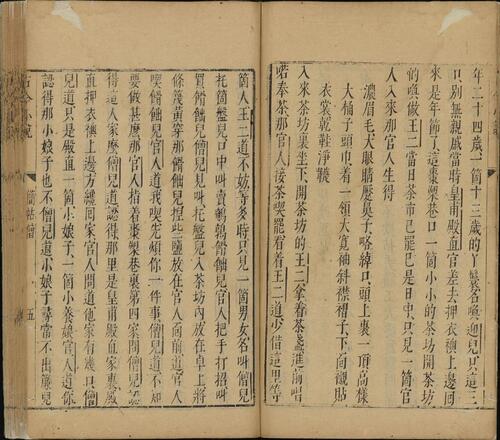 年二十四歲一箇十三歲的丫鬟名喚迎兒只這三
口別無親戚當時皇甫殿直官差去押衣襖上邊回
來是年節了這棗槊巷口一箇小小的茶坊開茶坊
的喚做王二當日茶市已罷巳是日中只見一箇官
人入來那官人生得
濃眉毛大眼睛蹷鼻子略綽口頭上裹一頂高樣
大桶子頭巾着一領大寬袖斜襟褶子下面襯貼
衣裳甜鞋淨襪
入來茶坊裏坐下開茶坊的王二拿着茶盞進前唱
喏奉茶那官人接茶喫罷看着王二道少借這里等
箇人王二道不妨等多時只見一箇男女名叫僧兒
托箇盤兒口中叫賣鵪鶉餶飿兒官人把手打招叫
買餶飿兒僧兒見叫托盤兒入茶坊內放在卓上將
條篾黃穿那餶飿兒捏些鹽放在官人面前道官人
喫餶飿兒官人道我喫先煩你一件事僧兒道不知
要做甚麼那官人指着棗槊巷裏第四家問僧兒認
得這人家麼僧兒道認得那里是皇甫殿直家裏殿
直押衣襖上邊方纔回家官人問道他家有幾口僧
兒道只是殿直一箇小娘子一箇小養娘官人道你
認得那小娘子也不僧兒道小娘子尋常不出簾兒
古今小說
簡帖僧
五